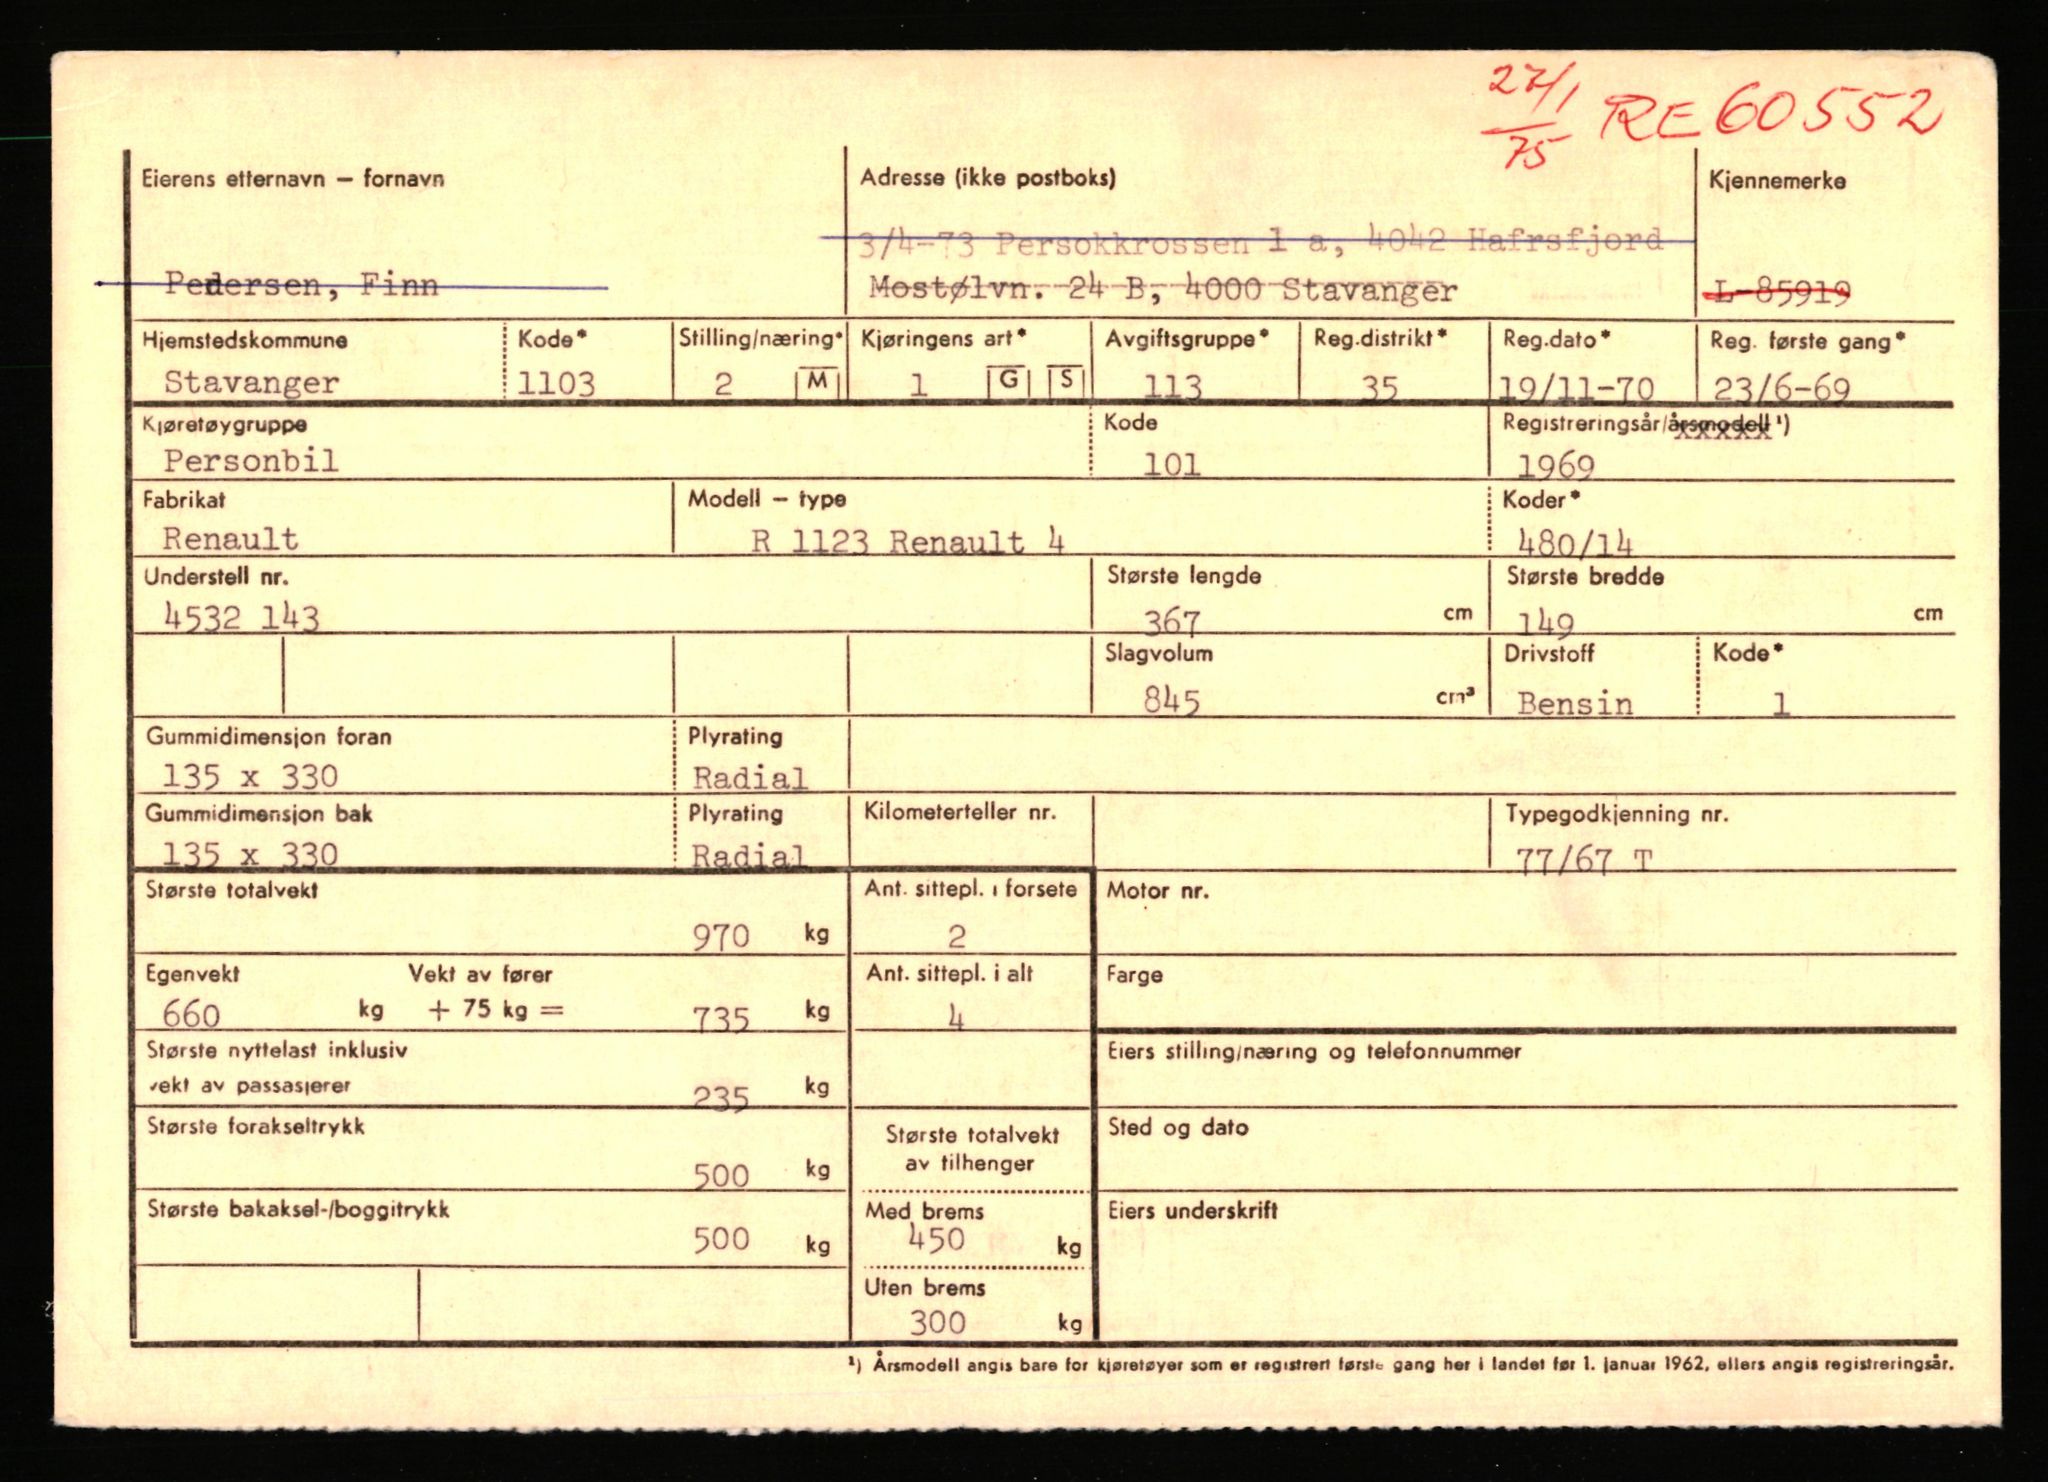 27/1
75
RE 60552
Eierens etternavn – fornavn
Adresse (ikke postboks)
Kjennemerke
3/4-73 Persokkrossen 1 a, 4042 Hafrsfjord
Pedersen, Finn
Mostølvn. 24 B, 4000 Stavanger
L-85919
Hjemstedskommune
Kode*
Stilling/næring*
Kjøringens art*
Avgiftsgruppe*
Reg.distrikt*
Reg.dato*
Reg. første gang*
Stavanger
1103
2 M
1 G S
113
35
19/11-70
23/6-69
Kjøretøygruppe
Kode
Registreringsår/årsmodell ¹)
Personbil
101
1969
Fabrikat
Modell – type
Koder*
Renault
R 1123 Renault 4
480/14
Understell nr.
Største lengde
Største bredde
4532 143
367 cm
149 cm
Slagvolum
Drivstoff
Kode*
845 cm³
Bensin
1
Gummidimensjon foran
Plyrating
135 x 330
Radial
Gummidimensjon bak
Plyrating
Kilometerteller nr.
Typegodkjenning nr.
135 x 330
Radial
77/67 T
Største totalvekt
Ant. sittepl. i forsete
Motor nr.
970 kg
2
Egenvekt
Vekt av fører
Ant. sittepl. i alt
Farge
660 kg + 75 kg = 735 kg
4
Største nyttelast inklusiv
vekt av passasjerer
235 kg
Eiers stilling/næring og telefonnummer
Største forakseltrykk
500 kg
Største totalvekt
av tilhenger
Sted og dato
Største bakaksel-/boggitrykk
500 kg
Med brems
450 kg
Eiers underskrift
Uten brems
300 kg
¹) Årsmodell angis bare for kjøretøyer som er registrert første gang her i landet før 1. januar 1962, ellers angis registreringsår.